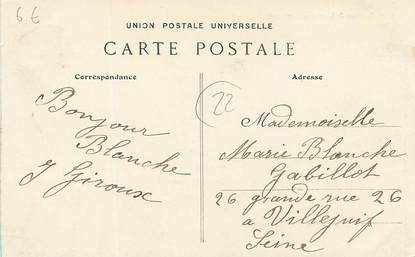 6.€
UNION POSTALE UNIVERSELLE
CARTE POSTALE
Correspondance
Adresse
22
Bonjour
Blanche
J Giroux
Mademoiselle
Marie Blanche
Gabillot
26 grande rue 26
a Villejuif
Seine